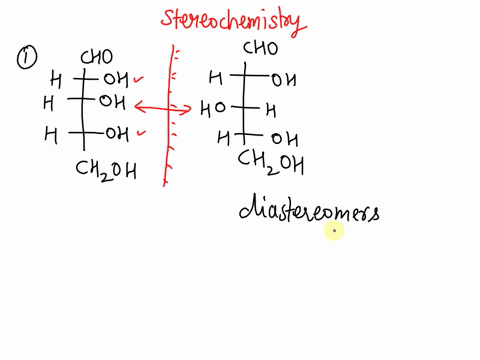 Stereochemistry
① CHO
H OH ✓
H OH
H OH ✓
CH₂OH
CHO
H OH
HO H
H OH
CH₂OH
diastereomers